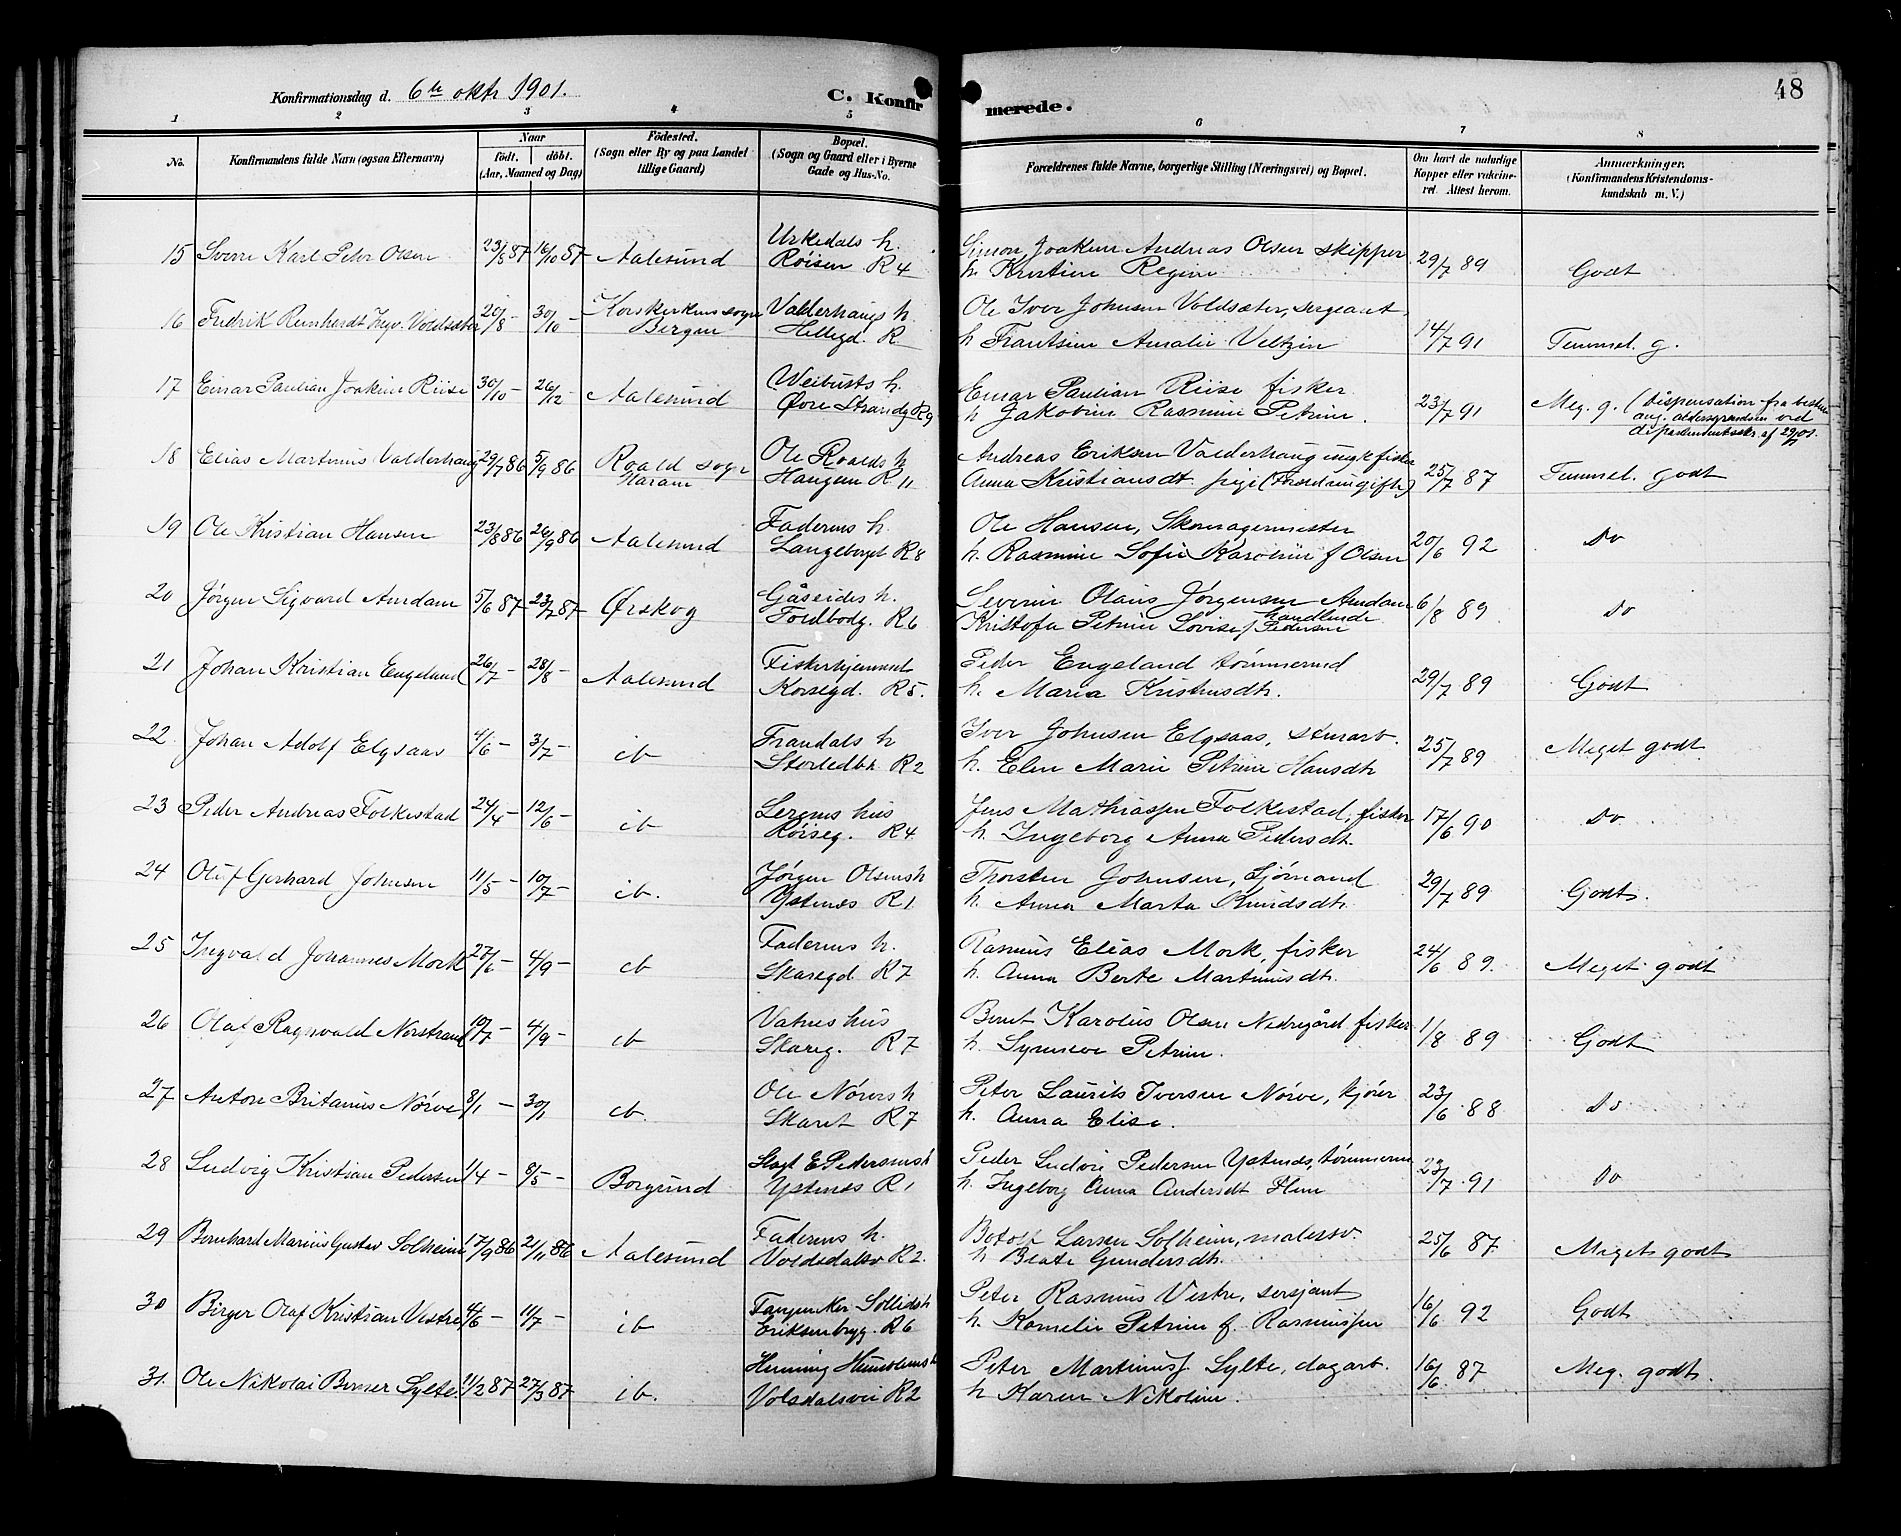 48
Konfirmationsdag d. 6te oktr 1901.
C. Konfirmerede.
1 2 3 4 5 6 7 8
No.
Konfirmandens fulde Navn (ogsaa Efternavn)
Naar
født. døbt.
(Aar, Maaned og Dag)
Fødested.
(Sogn eller By og paa Landet
tillige Gaard)
Bopæl.
(Sogn og Gaard eller i Byerne
Gade og Hus-No.
Forældrenes fulde Navne, borgerlige Stilling (Næringsvei) og Bopæl.
Om havt de naturlige
Kopper eller vakcine-
ret. Attest herom.
Anmærkninger.
(Konfirmandens Kristendoms-
kundskab m. V.)
15 Sverre Karl Peter Olsen 23/8 87 16/10 87 Aalesund Urkedals h. Simon Joakim Andreas Olsen skipper 29/7 89 Godt
Røisen R 4 h. Kristine Regine
16 Fredrik Reinhardt Ingv. Voldsæter 20/8 - 30/10 - Korskirkens sogn Valderhaugs h. Ole Iver Johnsen Voldsæter, sergeant, 14/7 91 Temmel. g.
Bergen Hellegd. R h Frantsine Amalie Veltzin
17 Einar Paulian Joakim Riise 30/10 - 26/12 - Aalesund Weibusts h. Einar Paulian Riise fisker 23/7 91 Meg. g. (Dispensation fra bestem
Øvre Strandg R 9 h Jakobine Rasmine Petrine. ang. aldersgrændsen ved
departementsskr. af
18 Elias Martinus Valderhaug 29/7 86 5/9 86 Roald sogn Ole Roalds h Andreas Eriksen Valderhaug ungk fisker 25/7 87 Temmel. godt
Haram Haugen R 11 Anna Kristiansdt pige (Foræld. ungifte)
19 Ole Kristian Hansen 23/8 86 26/9 86 Aalesund Faderens h. Ole Hansen, Skomagermester 20/6 92 Do
Langeborgt R 8 h. Rasmine Sofie Karoline f Olsen
20 Jørgen Sigvard Amdam 5/6 87 23/7 87 Ørskog Gåseides h. Severin Olaus Jørgensen Amdam 6/8 89 Do
handlende
Fordbodg. R 6 Kristofa Petrine Lovise f Pedersen
21 Johan Kristian Engeland 26/7 - 28/8 - Aalesund Fiskerhjemmet Peder Engeland tømmermd 29/7 89 Godt
Korsegd. R 5. h. Maria Kristensdt.
22. Johan Adolf Elgsaas 4/6 - 3/7 - ib Frandals h Iver Johnsen Elgsaas, stuearb. 25/7 89 Meget godt.
R 2 h. Elen Marie Petrine Hansdt
23 Peder Andreas Folkestad 24/4 - 12/6 - ib Lerems hus Jens Mathiassen Folkestad, fisker 17/6 90 Do
Røiseg. R 4 h. Ingeborg Anna Pedersdt.
24 Oluf Gerhard Johnsen 11/5 - 10/7 - ib. Jørgen Olsens h Thorsten Johnsen, Sjømand 29/7 89 Godt.
Ystenes R 1 h. Anna Marta Knudsdt.
25 Ingvald Johannes Mork 27/6 - 4/9 - ib Faderens h. Rasmus Elias Mork, fisker 24/6 89. Meget godt
Skaregd R 7 h. Anna Berte Martinusdt.
26 Olaf Ragnvald Norstrand 10/7 - 4/9 - ib Vatnes hus Bernt Karolus Olsen Nedregård fisker 1/8 89 Godt
Skareg. R 7 h. Synneve Petrine.
27 Anton Britanius Nørve 8/1 - 30/1 ib. Ole Nørves h Peter Laurits Iversen Nørve, kjører 23/6 88 Do
Skaret R 7 h. Anna Elise.
28 Ludvig Kristian Pedersen 1/4 - 8/5 - Borgund Slagt E Pedersens h Peder Ludvig Pedersen Ystenes, tømmerm 23/7 91 Do
Ystenes R 1 h. Ingeborg Anna Andersdt Flem
29 Bernhard Marius Gustav Solheim 17/9 86 21/11 86 Aalesund Faderens h. Botolf Larsen Solheim, malersv. 25/6 87 Meget godt
Voldsdalsv R 2. h Beate Gundersdt.
30 Birger Olaf Kristian Vestre 4/6 - 11/7 - ib Sollids h Peter Rasmus Vestre, sersjant 16/6 92 Godt
Eriksenbryg. R 6 h. Kornelie Petrine f. Rasmussen
31. Ole Nikolai Berner Sylte 21/2 87 27/3 87 ib. Henning Humblens h Peter Martinus f. Sylte, dagarb. 16/6 87 Meg. godt.
Volsdalsvei R 2 h Karen Nikoline.